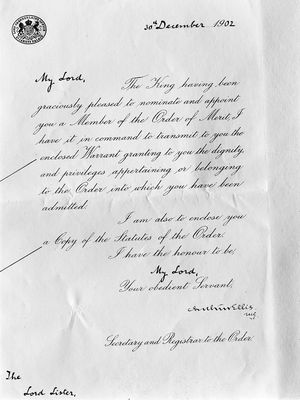 30th December 1902
My Lord,
The King having been
graciously pleased to nominate and appoint
you a Member of the Order of Merit, I
have it in command to transmit to you the
enclosed Warrant granting to you the dignity,
and privileges appertaining or belonging
to the Order into which you have been
admitted.
I am also to enclose you
a Copy of the Statutes of the Order.
I have the honour to be,
My Lord,
Your obedient Servant,
Arthur Ellis
Secretary and Registrar to the Order.
The
Lord Lister,